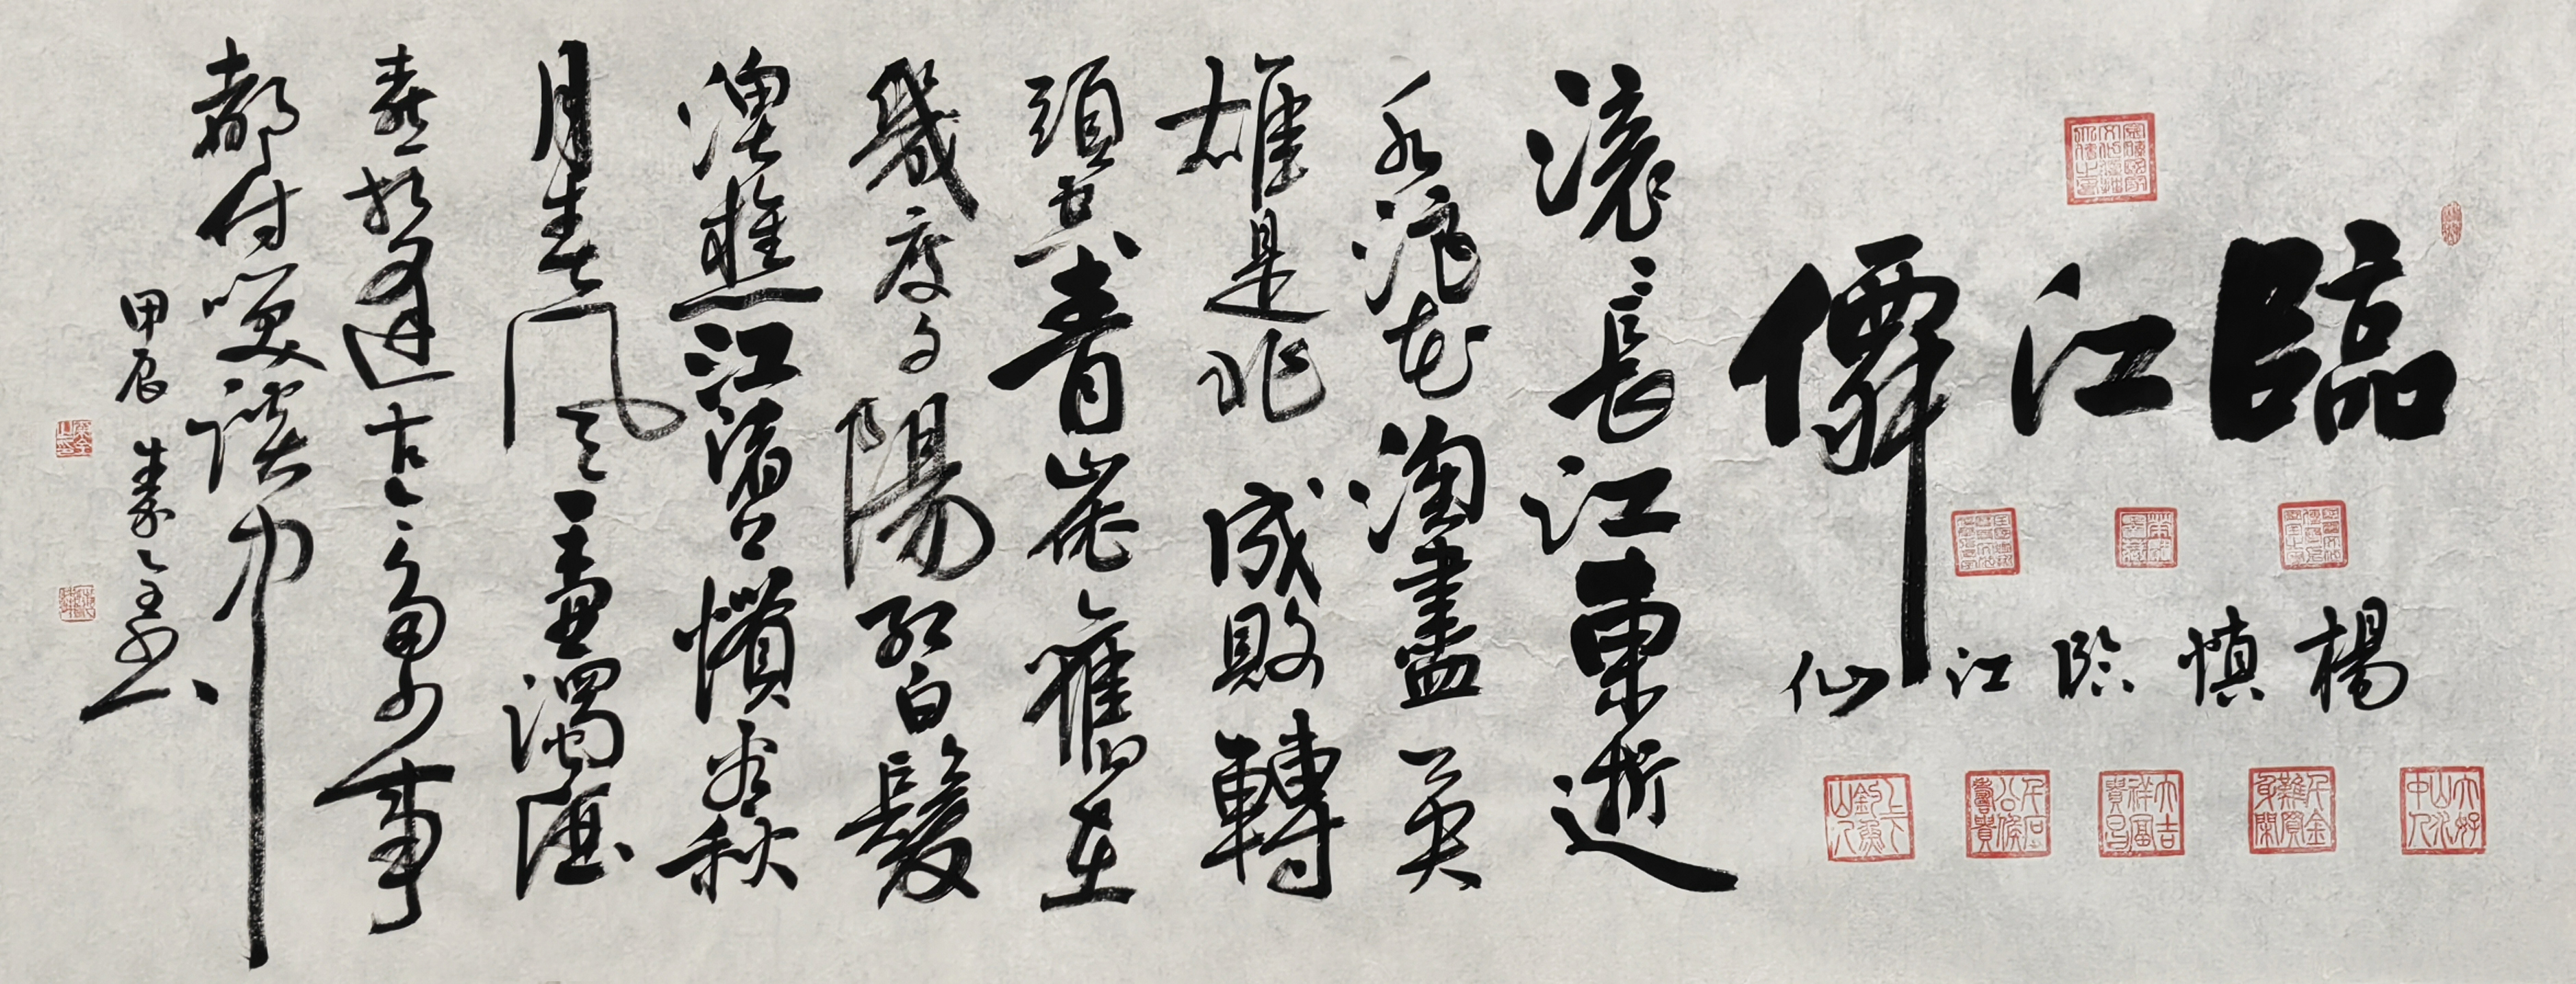 臨江僊
楊慎臨江仙
大好山水中人
大吉祥富貴昌
滾〻長江東逝
水浪花淘盡英
雄是非成敗轉
頭空青山依舊在
幾度夕陽紅白髮
漁樵江渚上慣看秋
月春風一壺濁酒
喜相逢古今多少事
都付笑談中
甲辰